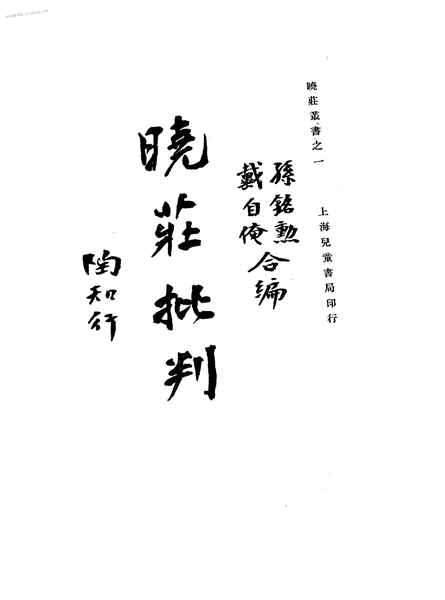 曉莊叢書之一
上海兒童書局印行
孫銘勲
戴自俺
合編
曉莊批判
陶知行